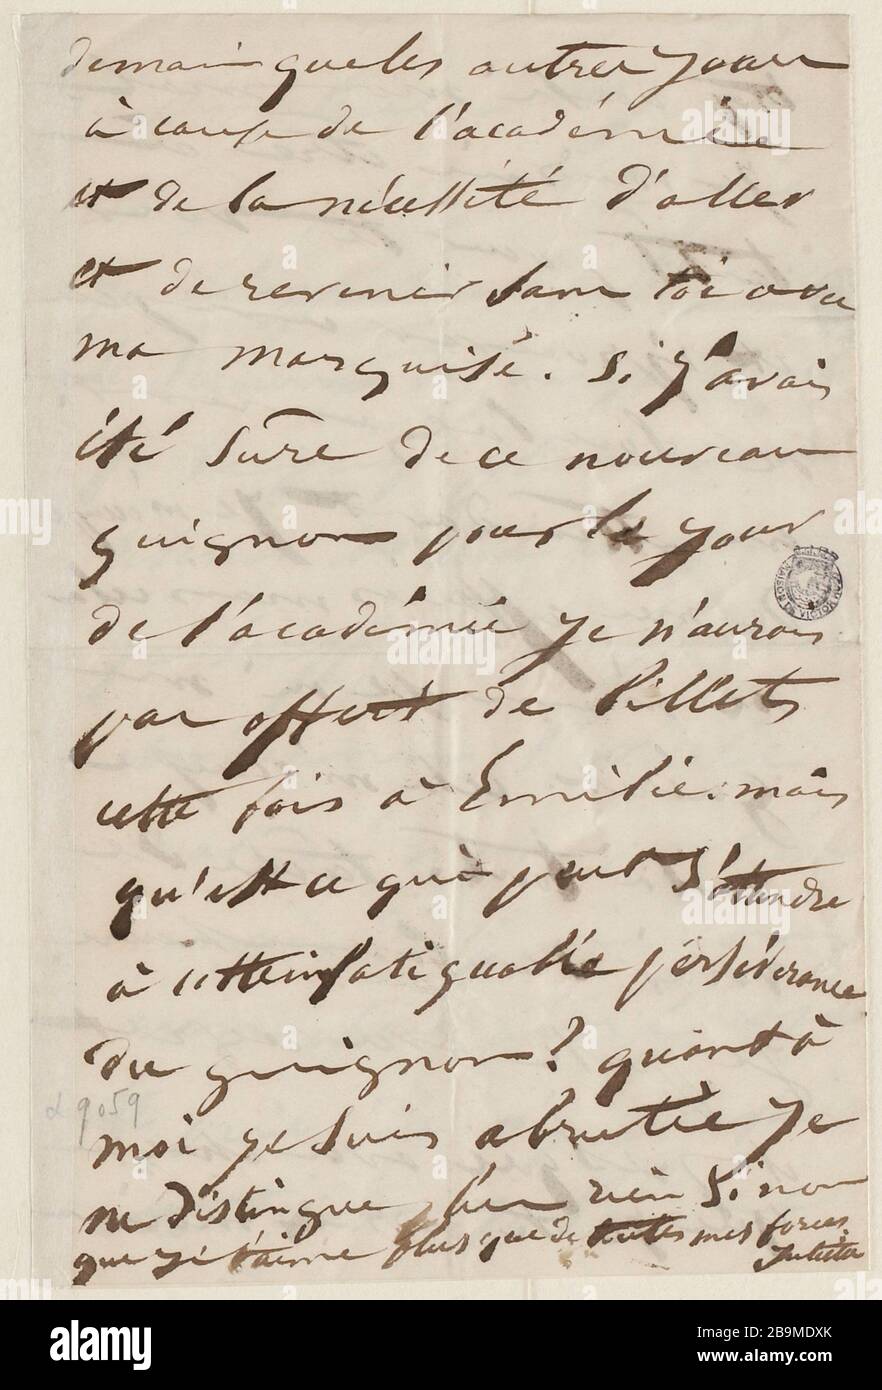 demain que les autres jours
à cause de l'académie
et de la nécessité d'aller
et de revenir sans toi avec
ma marquise. Si j'avais
été sûre de ce nouveau
guignon pour le jour
de l'académie je n'aurais
pas offert de billets
cette fois à Emilie. mais
qu'est ce qui peut s'attendre
à cette infatiguable persévérance
du guignon? quant à
moi je suis abrutie je
ne distingue plus rien sinon
que je t'aime plus que de toutes mes forces.
Juliette
α 9059
MAISON DE VICTOR HUGO
alamy
Image ID: 2B9MDXK
www.alamy.com